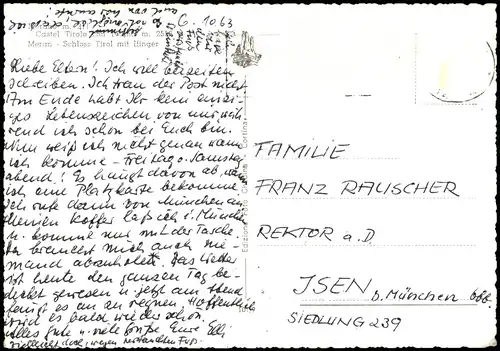 6.10.63
Castel Tirolo
Meran - Schloss Tirol mit Ifinger
Liebe Eltern! Ich will beizeiten
schreiben. Ich trau der Post nicht
Am Ende habt Ihr kein einzi-
ges Lebenszeichen von mir, wäh-
rend ich schon bei Euch bin.
Nun weiß ich nicht genau wann
ich komme - Freitag o. Samstag
abend! Es hängt davon ab, wann
ich eine Platzkarte bekomme.
Ich rufe dann von München an
Meinen Koffer laß ich i. München
u. komme nur mit der Tasche.
Da braucht mich auch nie-
mand abzuholen. Das Wetter
ist heute den ganzen Tag be-
deckt gewesen u. jetzt am Abend
fängt es an zu regnen. Hoffentlich
wird es bald wieder schön.
Alles gute u. viele Grüße Eure Elli
vielleicht doch, wegen
FAMILIE
FRANZ RAUSCHER
REKTOR a.D.
JSEN
b. München 866
SIEDLUNG 239